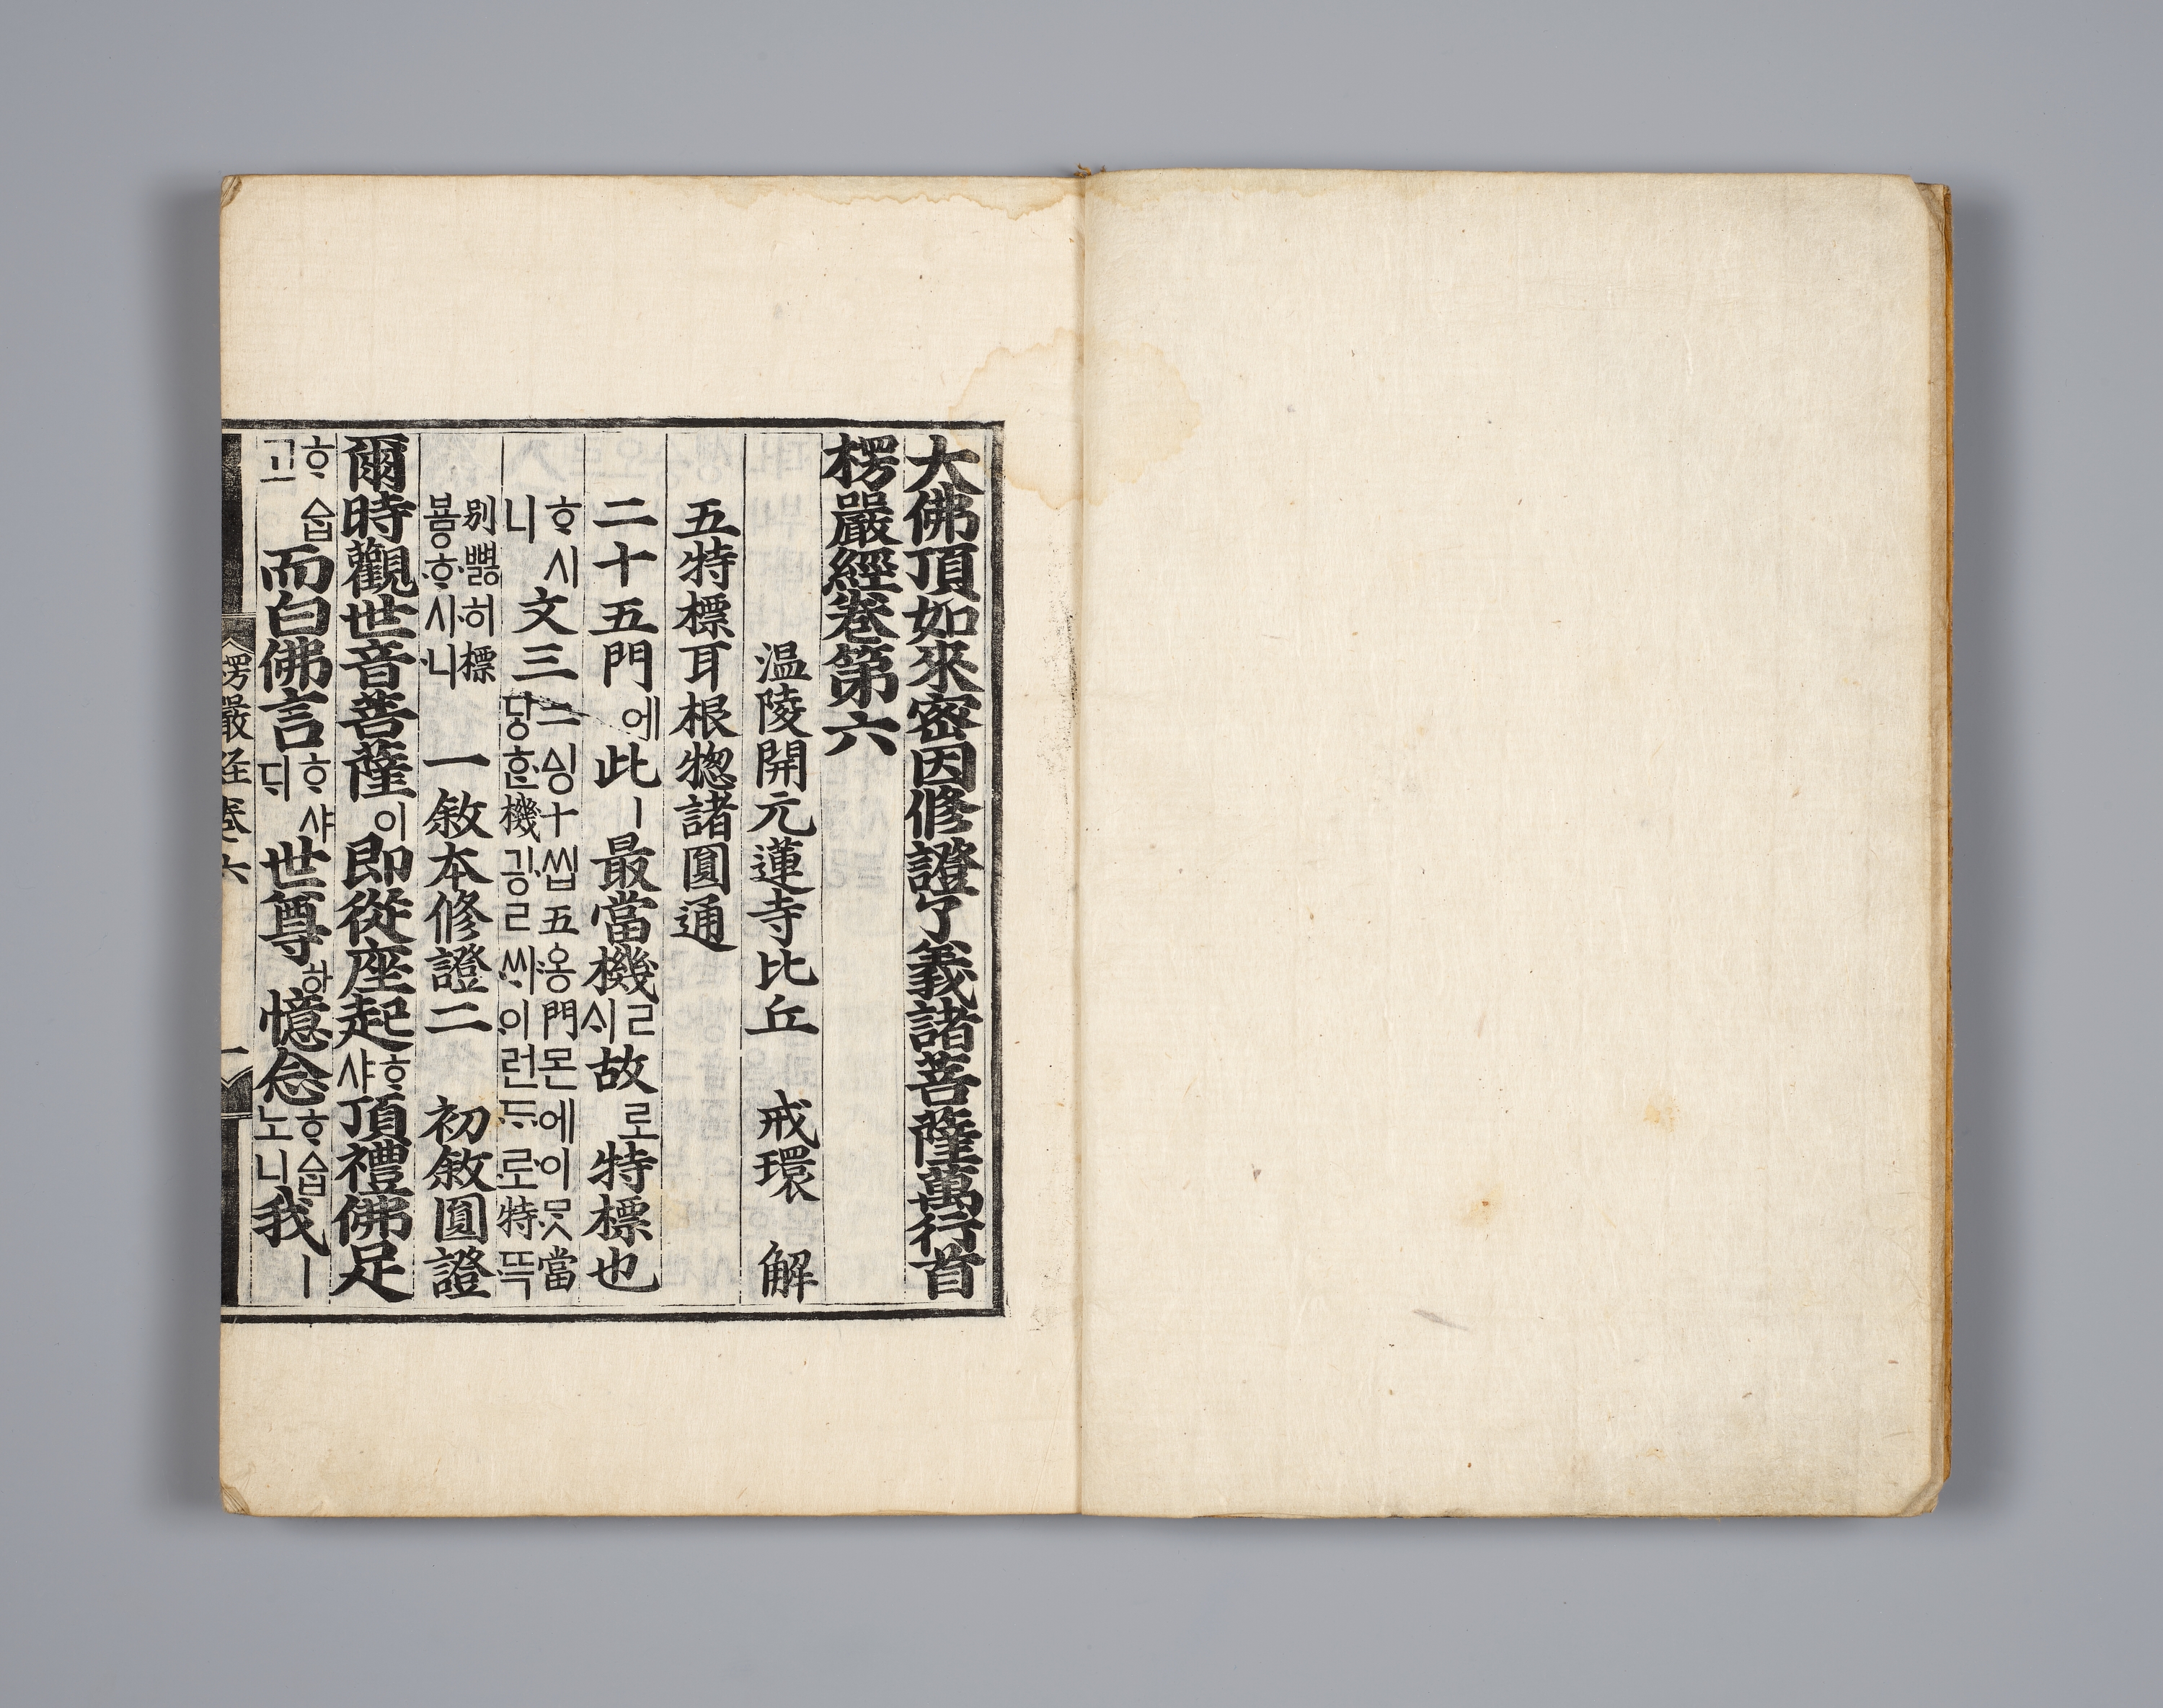 大佛頂如來密因修證了義諸菩薩萬行首
楞嚴經卷第六
温陵開元蓮寺比丘 戒環 解
五特標耳根惣諸圓通
二十五門에此ㅣ最當機ㄹᄉᆡ故로特標也
ᄒᆞ시니 文三 二ᅀᅵᆼ十씹五ᅌᅩᆼ門몬에이ᄆᆞᆺ當당ᄒᆞᆫ機긩ㄹᄊᆡ이런ᄃᆞ로特뜩
別뼈ᇙ히標뵤ᇢᄒᆞ시니 一敘本修證二 初敘圓證
爾時觀世音菩薩이即從座起ᄒᆞ샤頂禮佛足
ᄒᆞᅀᆞᆸ고而白佛言ᄒᆞ샤ᄃᆡ世尊하憶念ᄒᆞᅀᆞᆸ노니我ㅣ
楞嚴経卷六 一